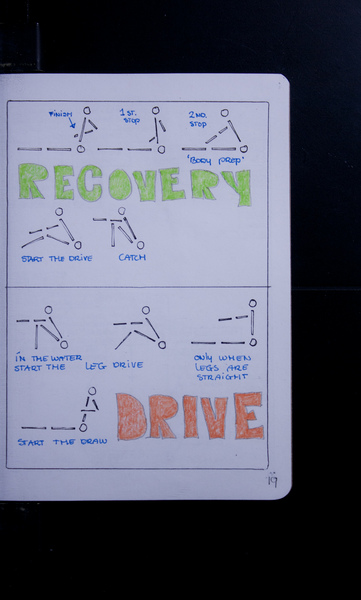 FINISH
1ST.
STOP
2ND.
STOP
"BODY PREP"
RECOVERY
START THE DRIVE
CATCH
IN THE WATER
START THE
LEG DRIVE
ONLY WHEN
LEGS ARE
STRAIGHT
START THE DRAW
DRIVE
19